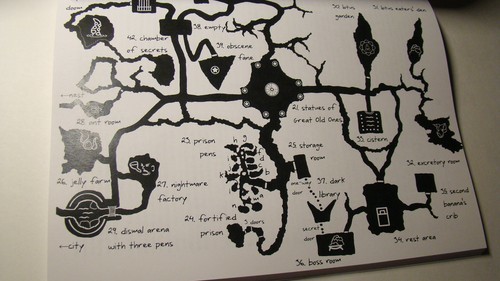 42. chamber
of secrets
38. empty
39. obscene
fane
garden
←nest
28. ant room
21. statues of
Great Old Ones
33. cistern
23. prison
pens
h g
f
d
c
b
k
n
25. storage
room
one-way
door
37. dark
library
32. excretory room
26. jelly farm
27. nightmare
factory
35. second
banana's
crib
24. fortified
prison
3 doors
secret
door
29. dismal arena
with three pens
←city
34. rest area
36. boss room